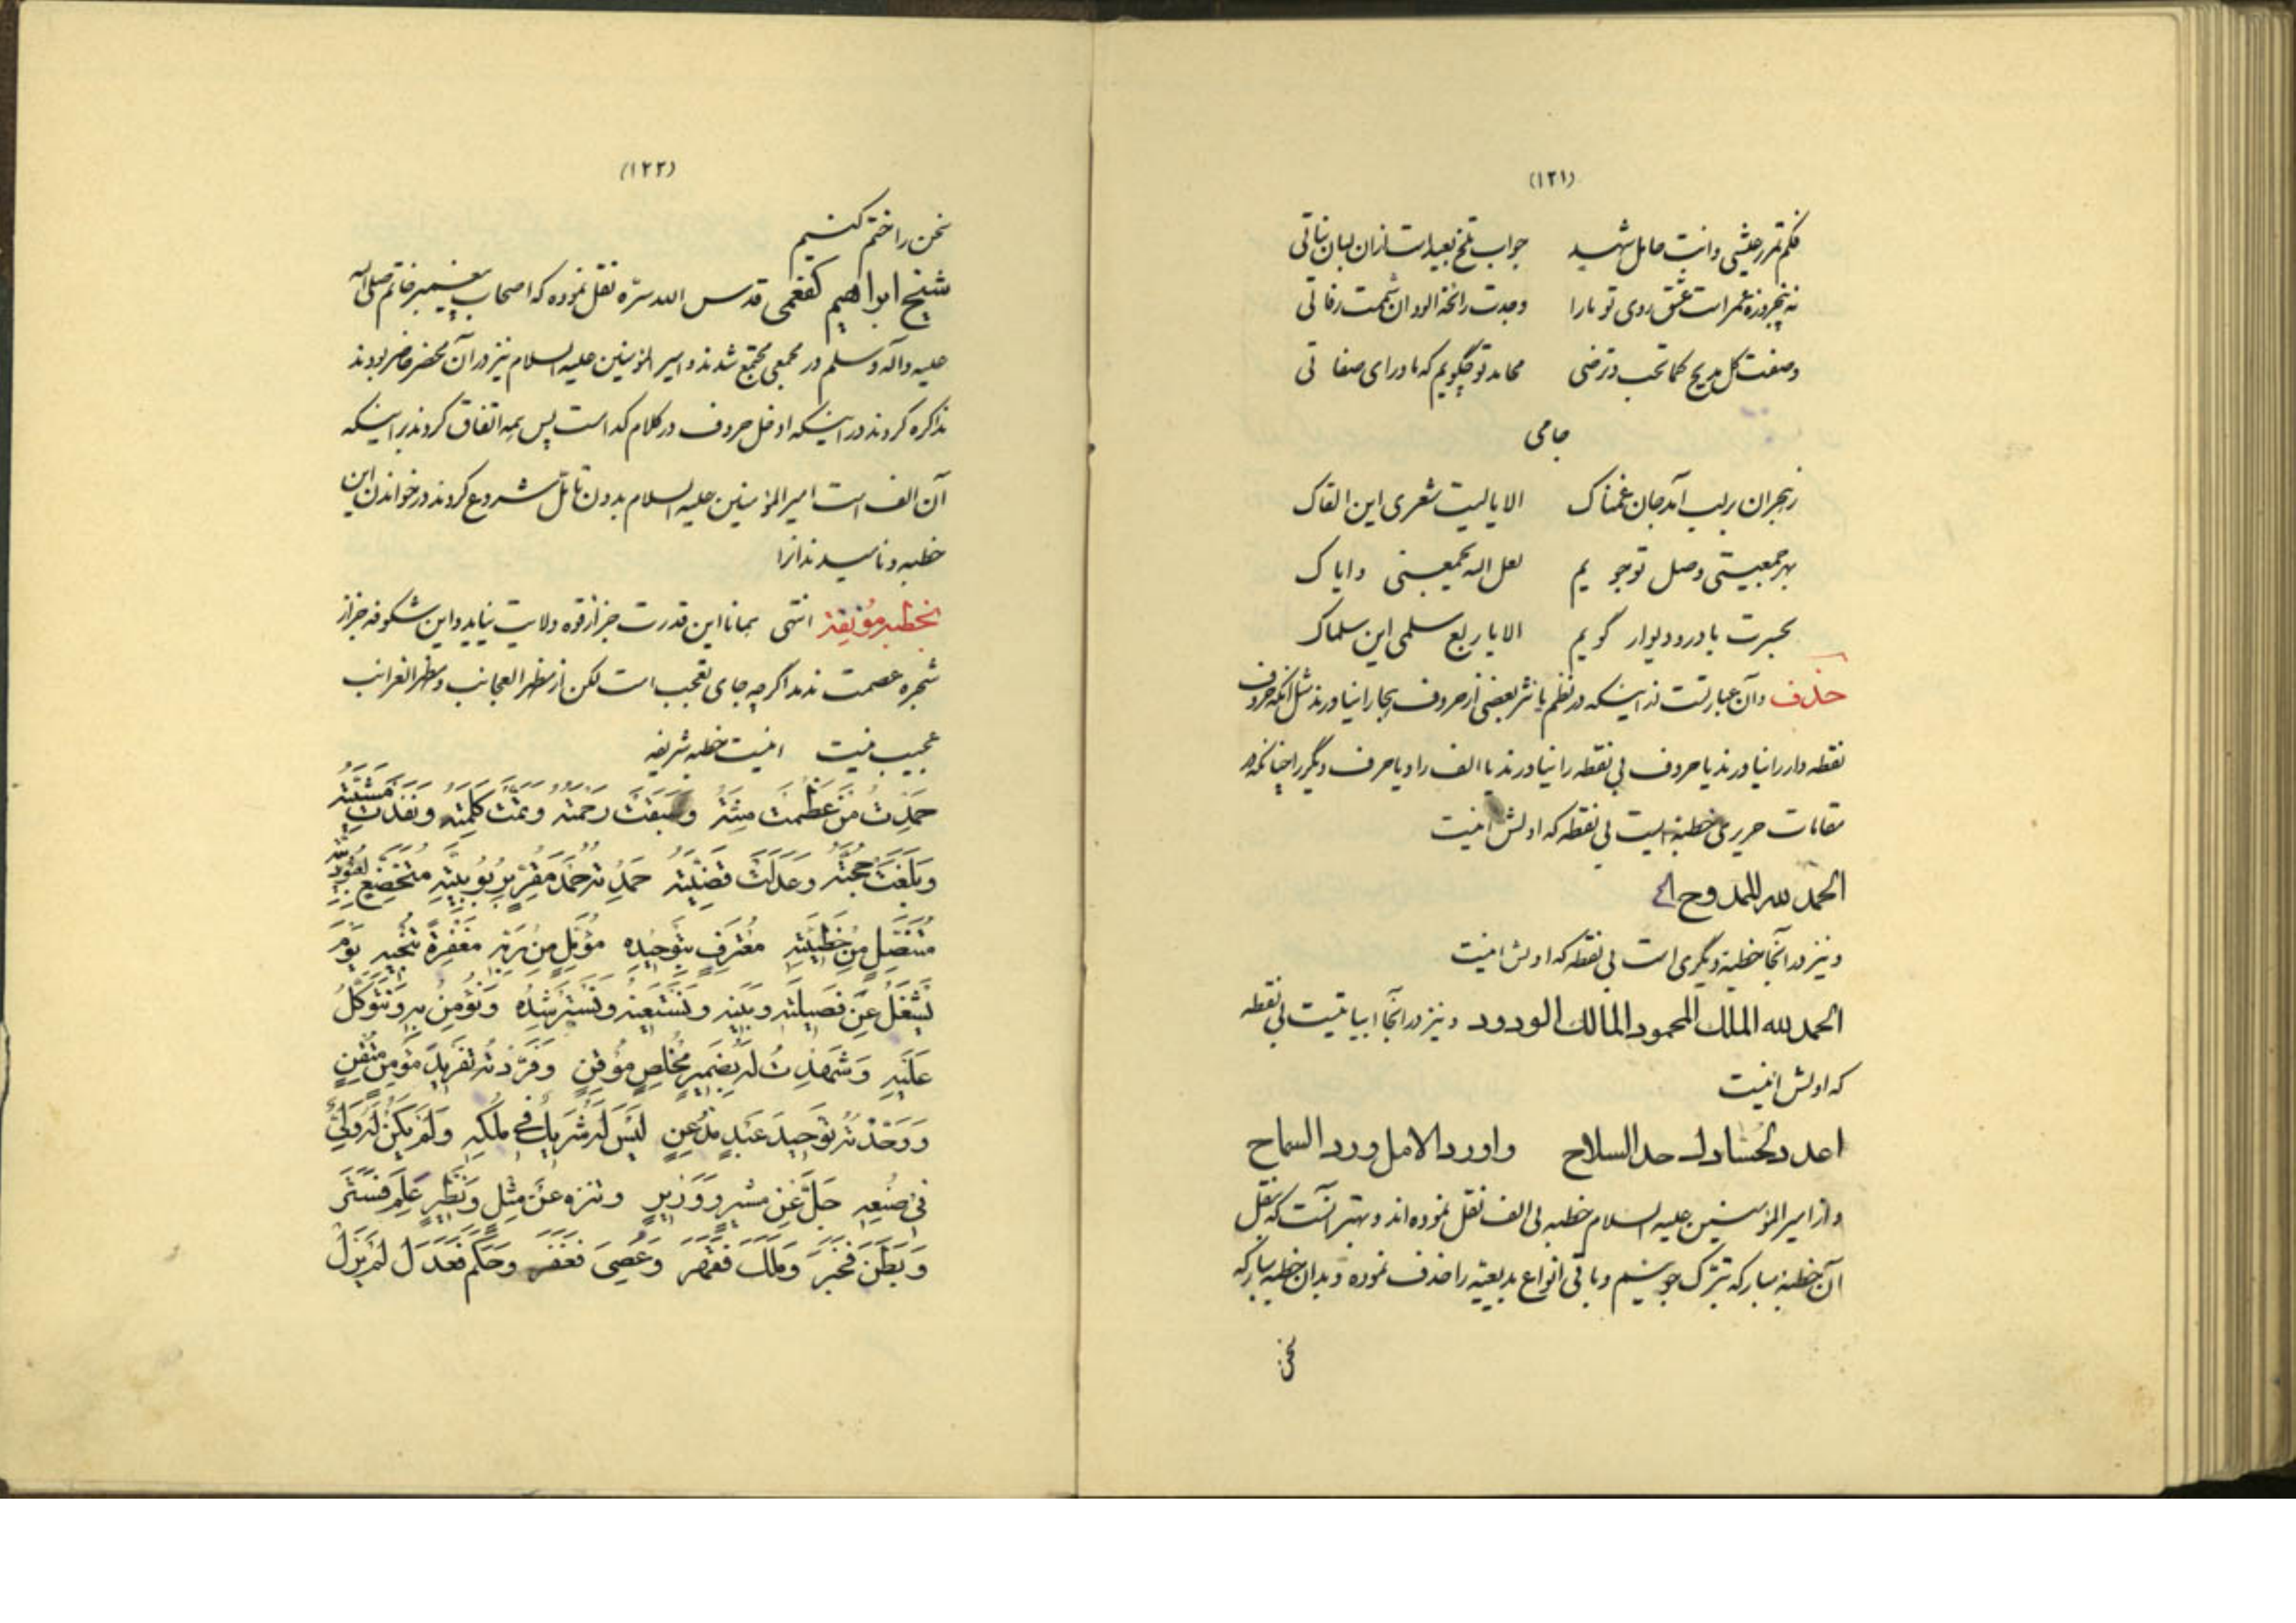 (۱۲۱)
فکم تمرر عیشی و انت حامل شهد جواب تلخ بعید است ازان لبان نباتی
نه پنجروزه عمر است عشق روی تو ما را وجدت رائحة الود ان شممت رفاتی
وصفت کل ملیح کما تحب و ترضی محامد تو چگویم که ماورای صفاتی
جامی
ز هجران بر لب آمد جان غمناک الا یا لیت شعری این القاک
بهر جمعیتی وصل تو جویم لعل الله یجمعنی و ایاک
بحسرت با در و دیوار گویم الا یا ربع سلمی این سلماک
حذف و آن عبارتست از اینکه در نظم یا نثر بعضی از حروف هجا را نیاورند مثل آنکه حروف
نقطه دار را نیاورند یا حروف بی نقطه را نیاورند یا الف را و یا حرف دیگر را چنانکه در
مقامات حریری خطبه ایست بی نقطه که اولش اینست
الحمد لله الممدوح الخ
و نیز در آنجا خطبه دیگری است بی نقطه که اولش اینست
الحمد لله الملک المحمود المالک الودود و نیز در آنجا ابیاتیست بی نقطه
که اولش اینست
اعدد لحسادک حد السلاح و اورد الامل ورد السماح
و از امیر المؤمنین علیه السلام خطبه بی الف نقل نموده اند و بهتر آنست که بنقل
آن خطبه مبارکه تبرک جوئیم و باقی انواع بدیعیه را حذف نموده و بدان خطبه مبارکه
سخن
(۱۲۲)
سخن را ختم کنیم
شیخ ابراهیم کفعمی قدس الله سره نقل نموده که اصحاب پیغمبر خاتم صلی الله
علیه و آله و سلم در مجمعی مجتمع شدند و امیر المؤمنین علیه السلام نیز در آن محضر حاضر بودند
مذاکره کردند در اینکه ادخل حروف در کلام کدامست پس همه اتفاق کردند بر اینکه
آن الف است امیر المؤمنین علیه السلام بدون تامل شروع کردند در خواندن این
خطبه و نامیدند آنرا
بخطبه مونقة انتهی همانا این قدرت جز از قوه ولایت نیاید و این شکوفه جز از
شجره عصمت ندمد اگرچه جای تعجب است لکن از مظهر العجائب و مظهر الغرائب
عجیب نیست اینست خطبه شریفه
حَمِدْتُ مَنْ عَظُمَتْ مِنَّتُهُ وَ سَبَقَتْ رَحْمَتُهُ وَ تَمَّتْ كَلِمَتُهُ وَ نَفَذَتْ مَشِيَّتُهُ
وَ بَلَغَتْ حُجَّتُهُ وَ عَدَلَتْ قَضِيَّتُهُ حَمِدْتُهُ حَمْدَ مُقِرٍّ بِرُبُوبِيَّتِهِ مُتَخَضِّعٍ لِعُبُودِيَّتِهِ
مُتَنَصِّلٍ مِنْ خَطِيئَتِهِ مُعْتَرِفٍ بِتَوْحِيدِهِ مُؤَمِّلٍ مِنْ رَبِّهِ مَغْفِرَةً تُنْجِيهِ يَوْمَ
يُشْغَلُ عَنْ فَصِيلَتِهِ وَ بَنِيهِ وَ نَسْتَعِينُهُ وَ نَسْتَرْشِدُهُ وَ نُؤْمِنُ بِهِ وَ نَتَوَكَّلُ
عَلَيْهِ وَ شَهِدْتُ لَهُ بِضَمِيرٍ مُخْلِصٍ مُوقِنٍ وَ فَرَّدْتُهُ تَفْرِيدَ مُؤْمِنٍ مُتْقِنٍ
وَ وَحَّدْتُهُ تَوْحِيدَ عَبْدٍ مُذْعِنٍ لَيْسَ لَهُ شَرِيكٌ فِي مُلْكِهِ وَ لَمْ يَكُنْ لَهُ وَلِيٌّ
فِي صُنْعِهِ جَلَّ عَنْ مُشِيرٍ وَ وَزِيرٍ وَ تَنَزَّهَ عَنْ مِثْلٍ وَ نَظِيرٍ عَلِمَ فَسَتَرَ
وَ بَطَنَ فَخَبَرَ وَ مَلَكَ فَقَهَرَ وَ عُصِيَ فَغَفَرَ وَ حَكَمَ فَعَدَلَ لَمْ يَزَلْ